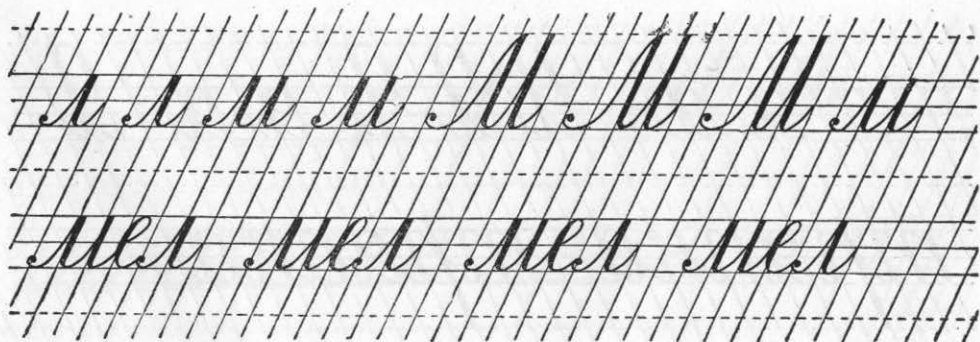 л л м м М М М м
мел мел мел мел